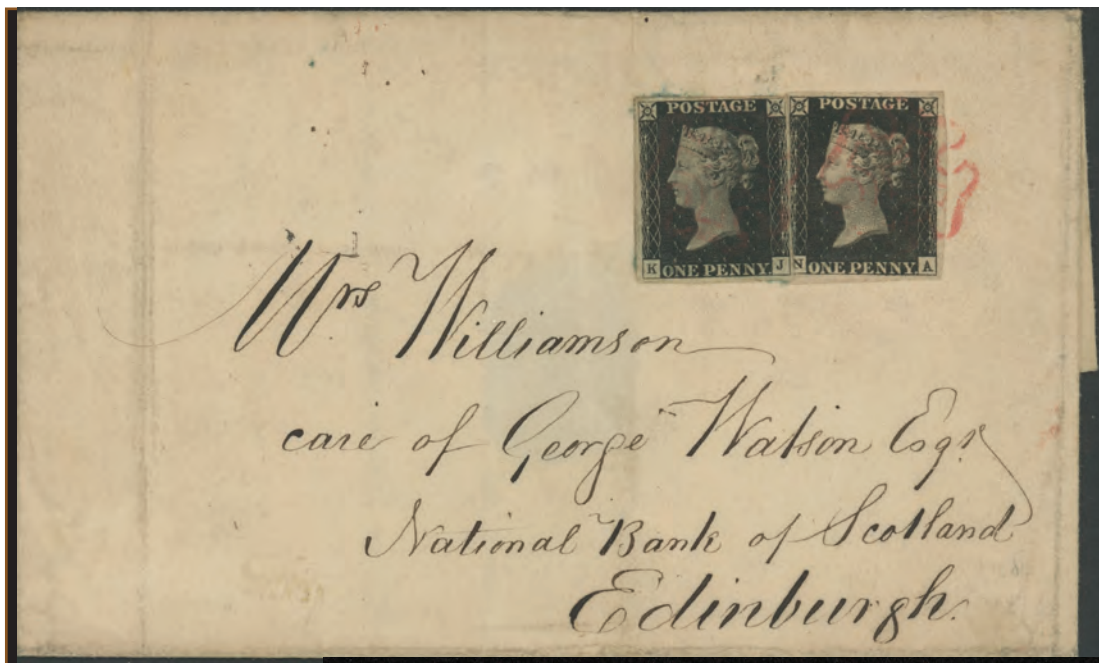 POSTAGE POSTAGE
K ONE PENNY J N ONE PENNY A
Mrs Williamson
care of George Watson Esqr
National Bank of Scotland
Edinburgh.